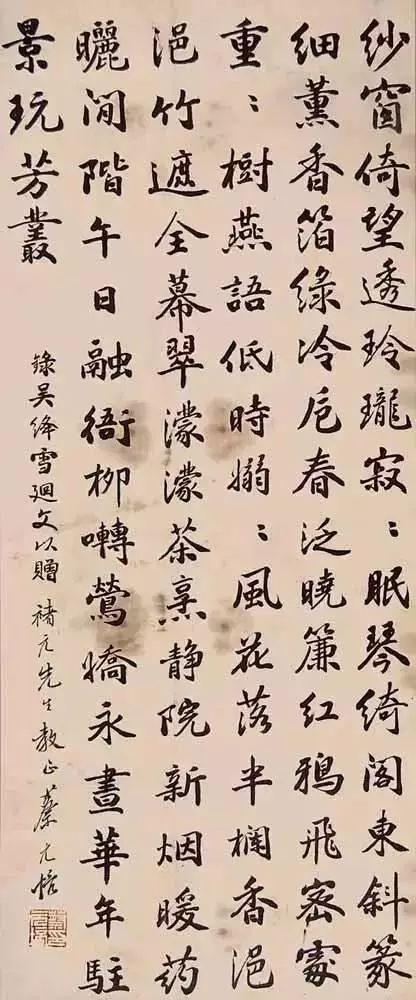 紗窗倚望透玲瓏寂〻眠琴綺閣東斜篆
細薰香箔綠冷卮春泛曉簾紅鴉飛密處
重〻樹燕語低時嫋〻風花落半欄香浥
浥竹遮全幕翠濛濛茶烹静院新烟暖药
曬閒階午日融衙柳囀鶯嬌永晝華年駐
景玩芳叢
錄吳絳雪迴文以贈 褚元先生教正 蔡元培